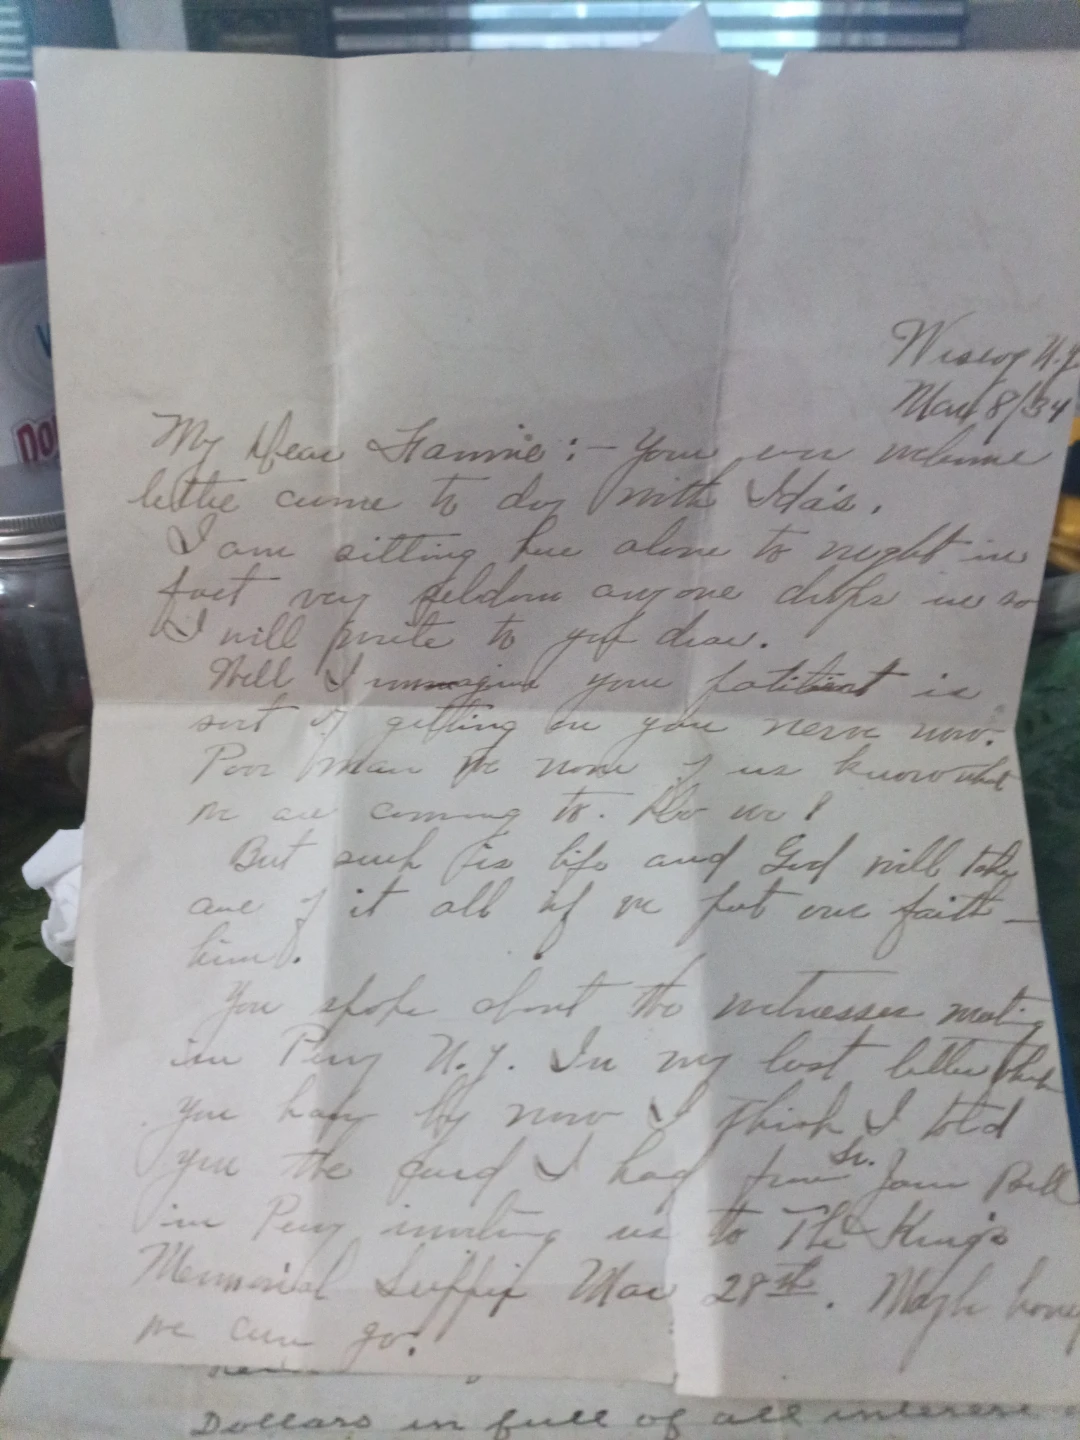 Wiscoy N.Y.
Mar 8/34
My Dear Fannie:- Your ever welcome
letter came to day with Ida's.
I am sitting here alone to night in
fact very seldom any one drops in so
I will write to you dear.
Well I immagine your patitient is
sort of getting on your nerve now.
Poor man we none of us know what
we are coming to. Do we?
But such is life and God will take
care of it all if we put our faith -
him.
You spoke about the witnesses meeting
in Perry N.Y. In my last letter which
you have by now I think I told
you the card I had from Sr. Jane Bell
in Perry inviting us to The King's
Memorial Supper Mar 28th. Maybe honey
we can go.
Dollars in full of all interest
DO